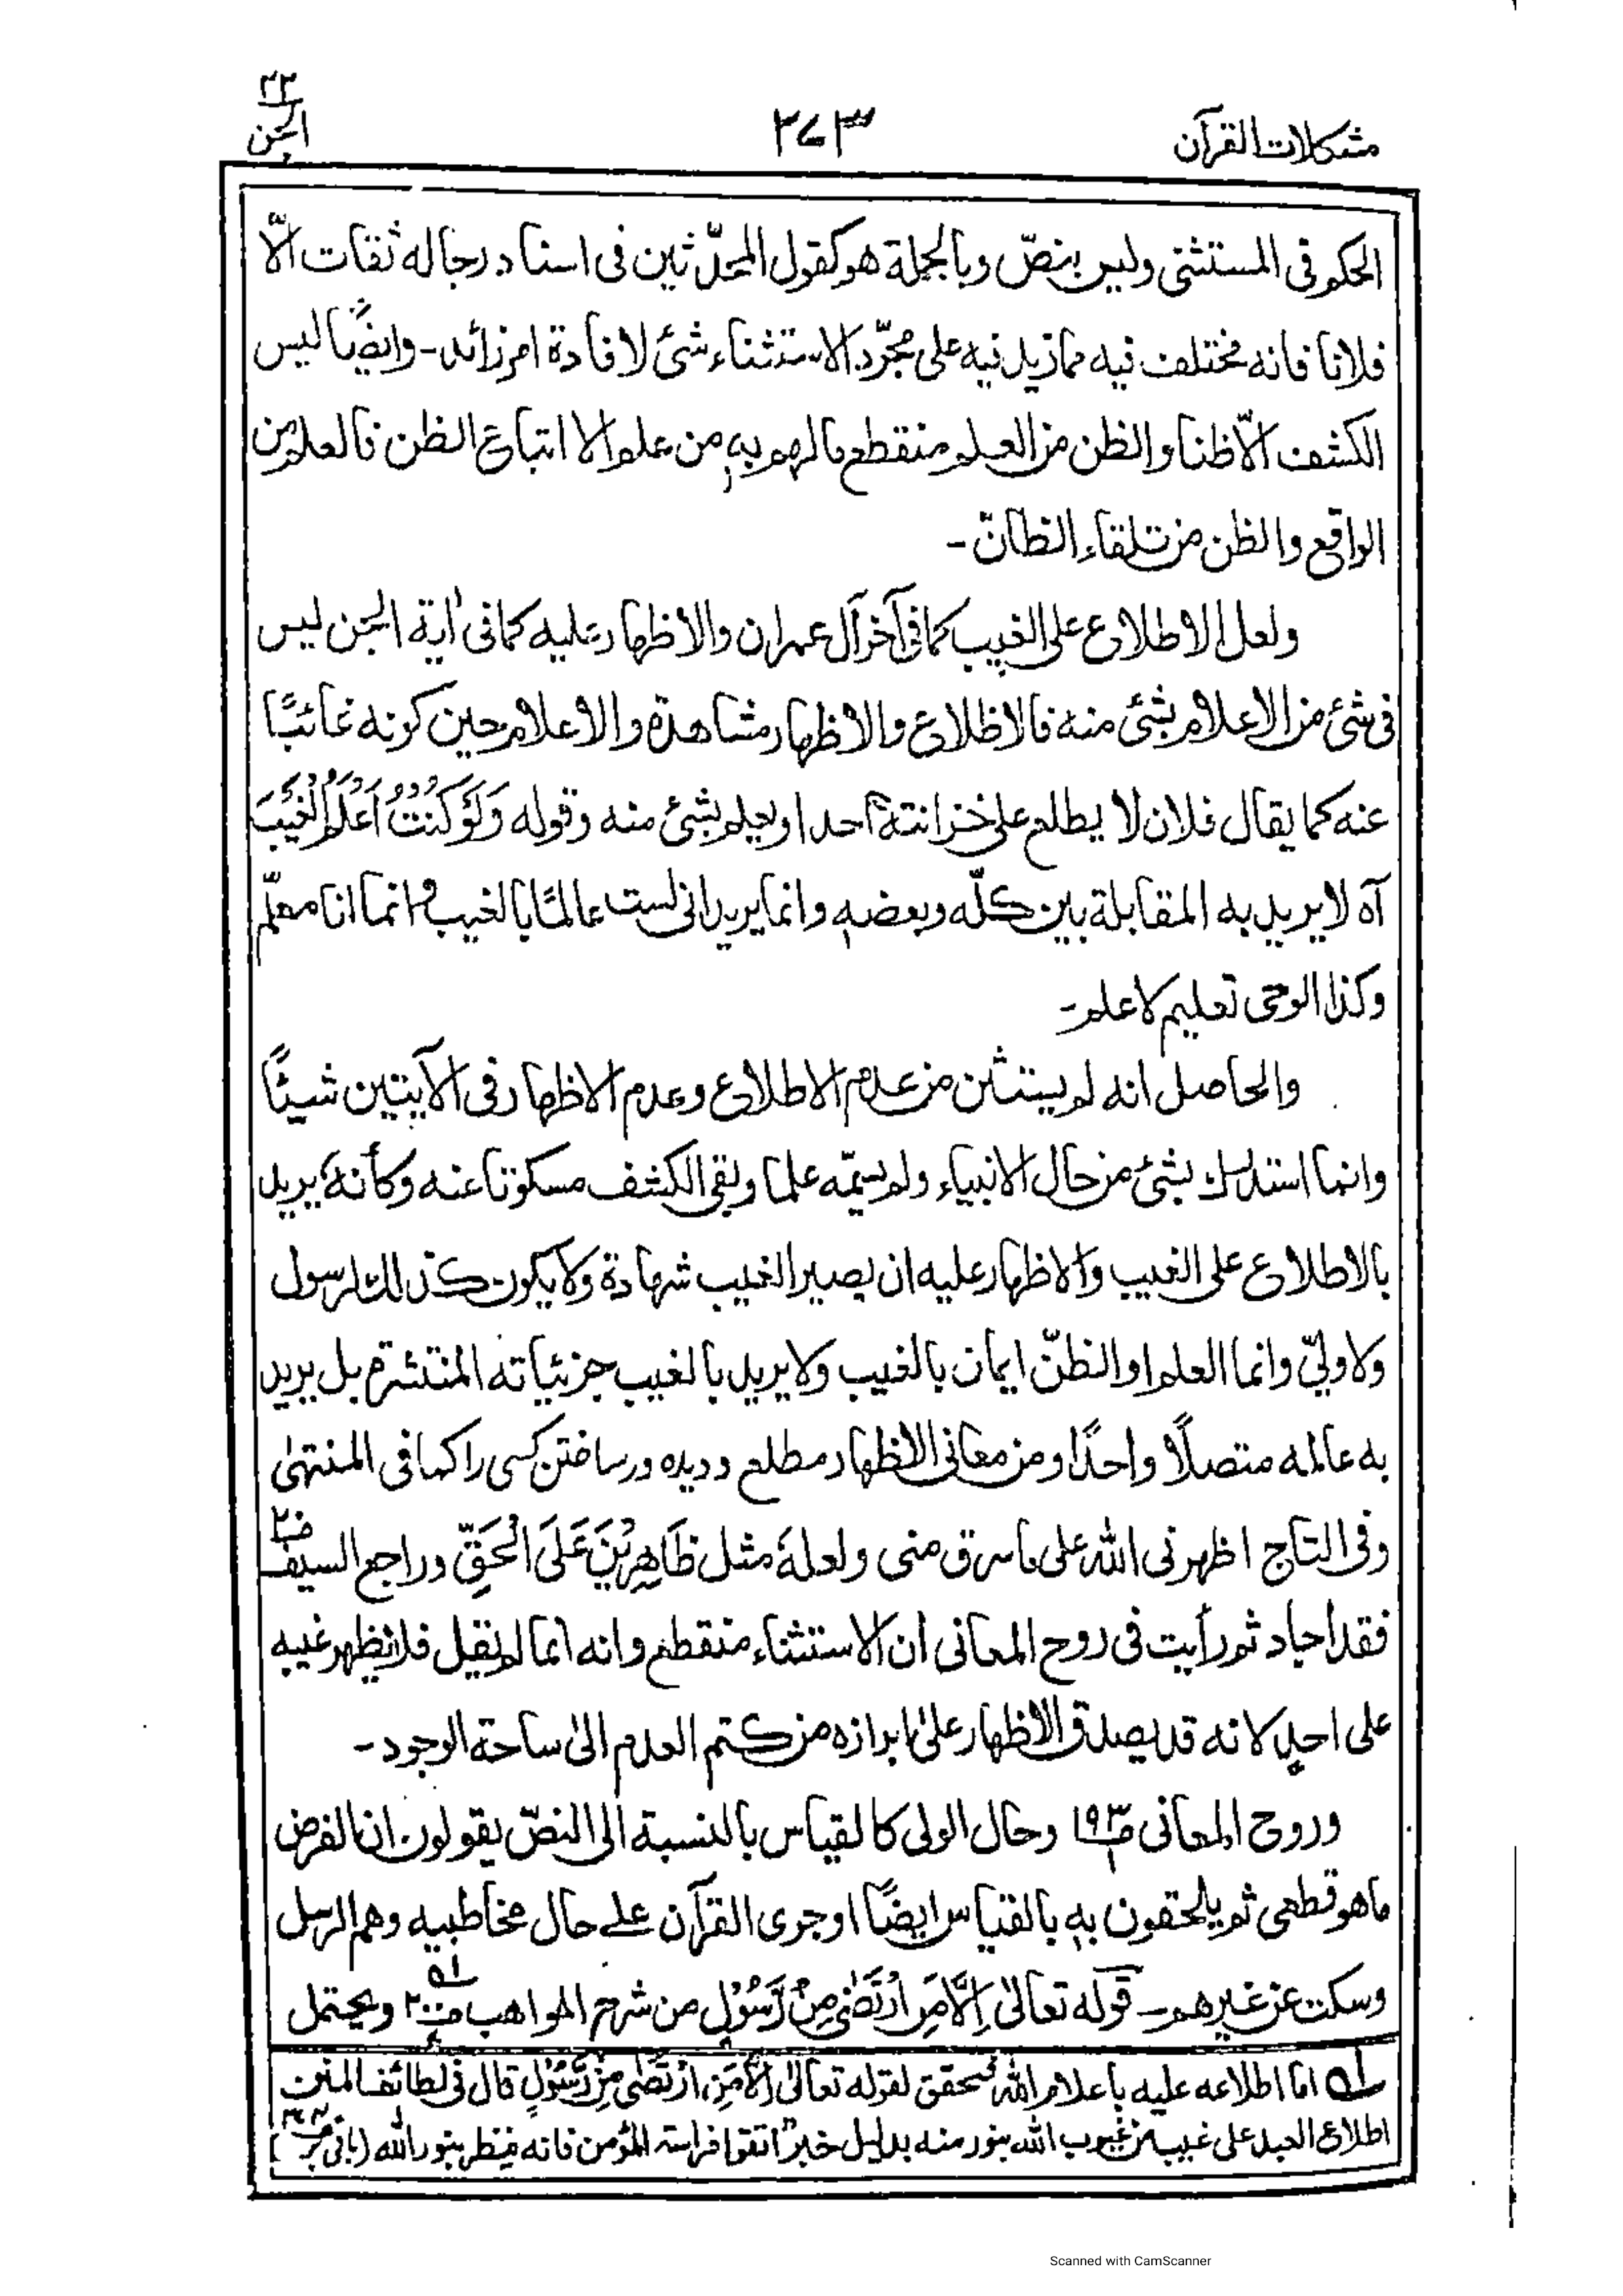 مشكلات القرآن
٢٧٣
٢٣
الجن
الحكم فى المستثنى وليس بنصّ وبالجملة هو كقول المحدّثين فى اسناد رجاله ثقات الّا
فلانا فانه مختلف فيه مما زيد فيه على مجرّد الاستثناء شئ لافادة امر زائد - وايضًا ليس
الكشف الّا ظنا والظن من العلم منقطع مالهم به من علم الا اتباع الظن فالعلم من
الواقع والظن من تلقاء الظانّ -
ولعل الاطلاع على الغيب كما فى آخر آل عمران والاظهار عليه كما فى آية الجن ليس
فى شئ من الاعلام بشئ منه فالاطلاع والاظهار مشاهدة والاعلام حين كونه غائبًا
عنه كما يقال فلان لا يطلع على خزانته احدا ويعلم بشئ منه وقوله وَلَوْ كُنْتُ اَعْلَمُ الْغَيْبَ
آه لا يريد به المقابلة بين كلّه وبعضه وانما يريد انى لست عالمًا بالغيب وانما انا معلّم
وكذا الوحى تعليم لا علم -
والحاصل انه لم يستثن من عدم الاطلاع وعدم الاظهار فى الآيتين شيئًا
وانما استدرك بشئ من حال الانبياء ولم يسمّه علما وبقى الكشف مسكوتا عنه وكأنه يريد
بالاطلاع على الغيب والاظهار عليه ان يصير الغيب شهادة ولا يكون كذلك لرسول
ولا ولىّ وانما العلم او الظنّ ايمان بالغيب ولا يريد بالغيب جزئياته المنتشرة بل يريد
به عالمه متصلًا واحدًا ومن معانى الاظهار مطلع ودیده ور ساختن کسی را كما فى المنتهىٰ
وفى التاج اظهرنى الله على ما سرق منى ولعله مثل ظَاهِرِيْنَ عَلَى الْحَقِّ وراجع السيف ص٢
فقد اجاد ثم رأيت فى روح المعانى ان الاستثناء منقطع وانه انما لم يقل فلا يظهر غيبه
على احد لانه قد يصدق الاظهار على ابرازه من كتم العدم الىٰ ساحة الوجود -
وروح المعانى ص١٩٣ وحال الولى كالقياس بالنسبة الى النصّ يقولون ان الفرض
ما هو قطعى ثم يلحقون به بالقياس ايضًا او جرى القرآن على حال مخاطبيه وهم الرسل
وسكت عن غيرهم - قوله تعالىٰ اِلَّا مَنِ ارْتَضٰى مِنْ رَّسُوْلٍ من شرح المواهب ويحتمل
له اما اطلاعه عليه باعلام الله فمحقق لقوله تعالىٰ اِلَّا مَنِ ارْتَضٰى مِنْ رَّسُوْلٍ قال فى لطائف المنن
اطلاع العبد على غيب من غيوب الله بنور منه بدليل خبر اتقوا فراسة المؤمن فانه ينظر بنور الله (باقى بر
Scanned with CamScanner